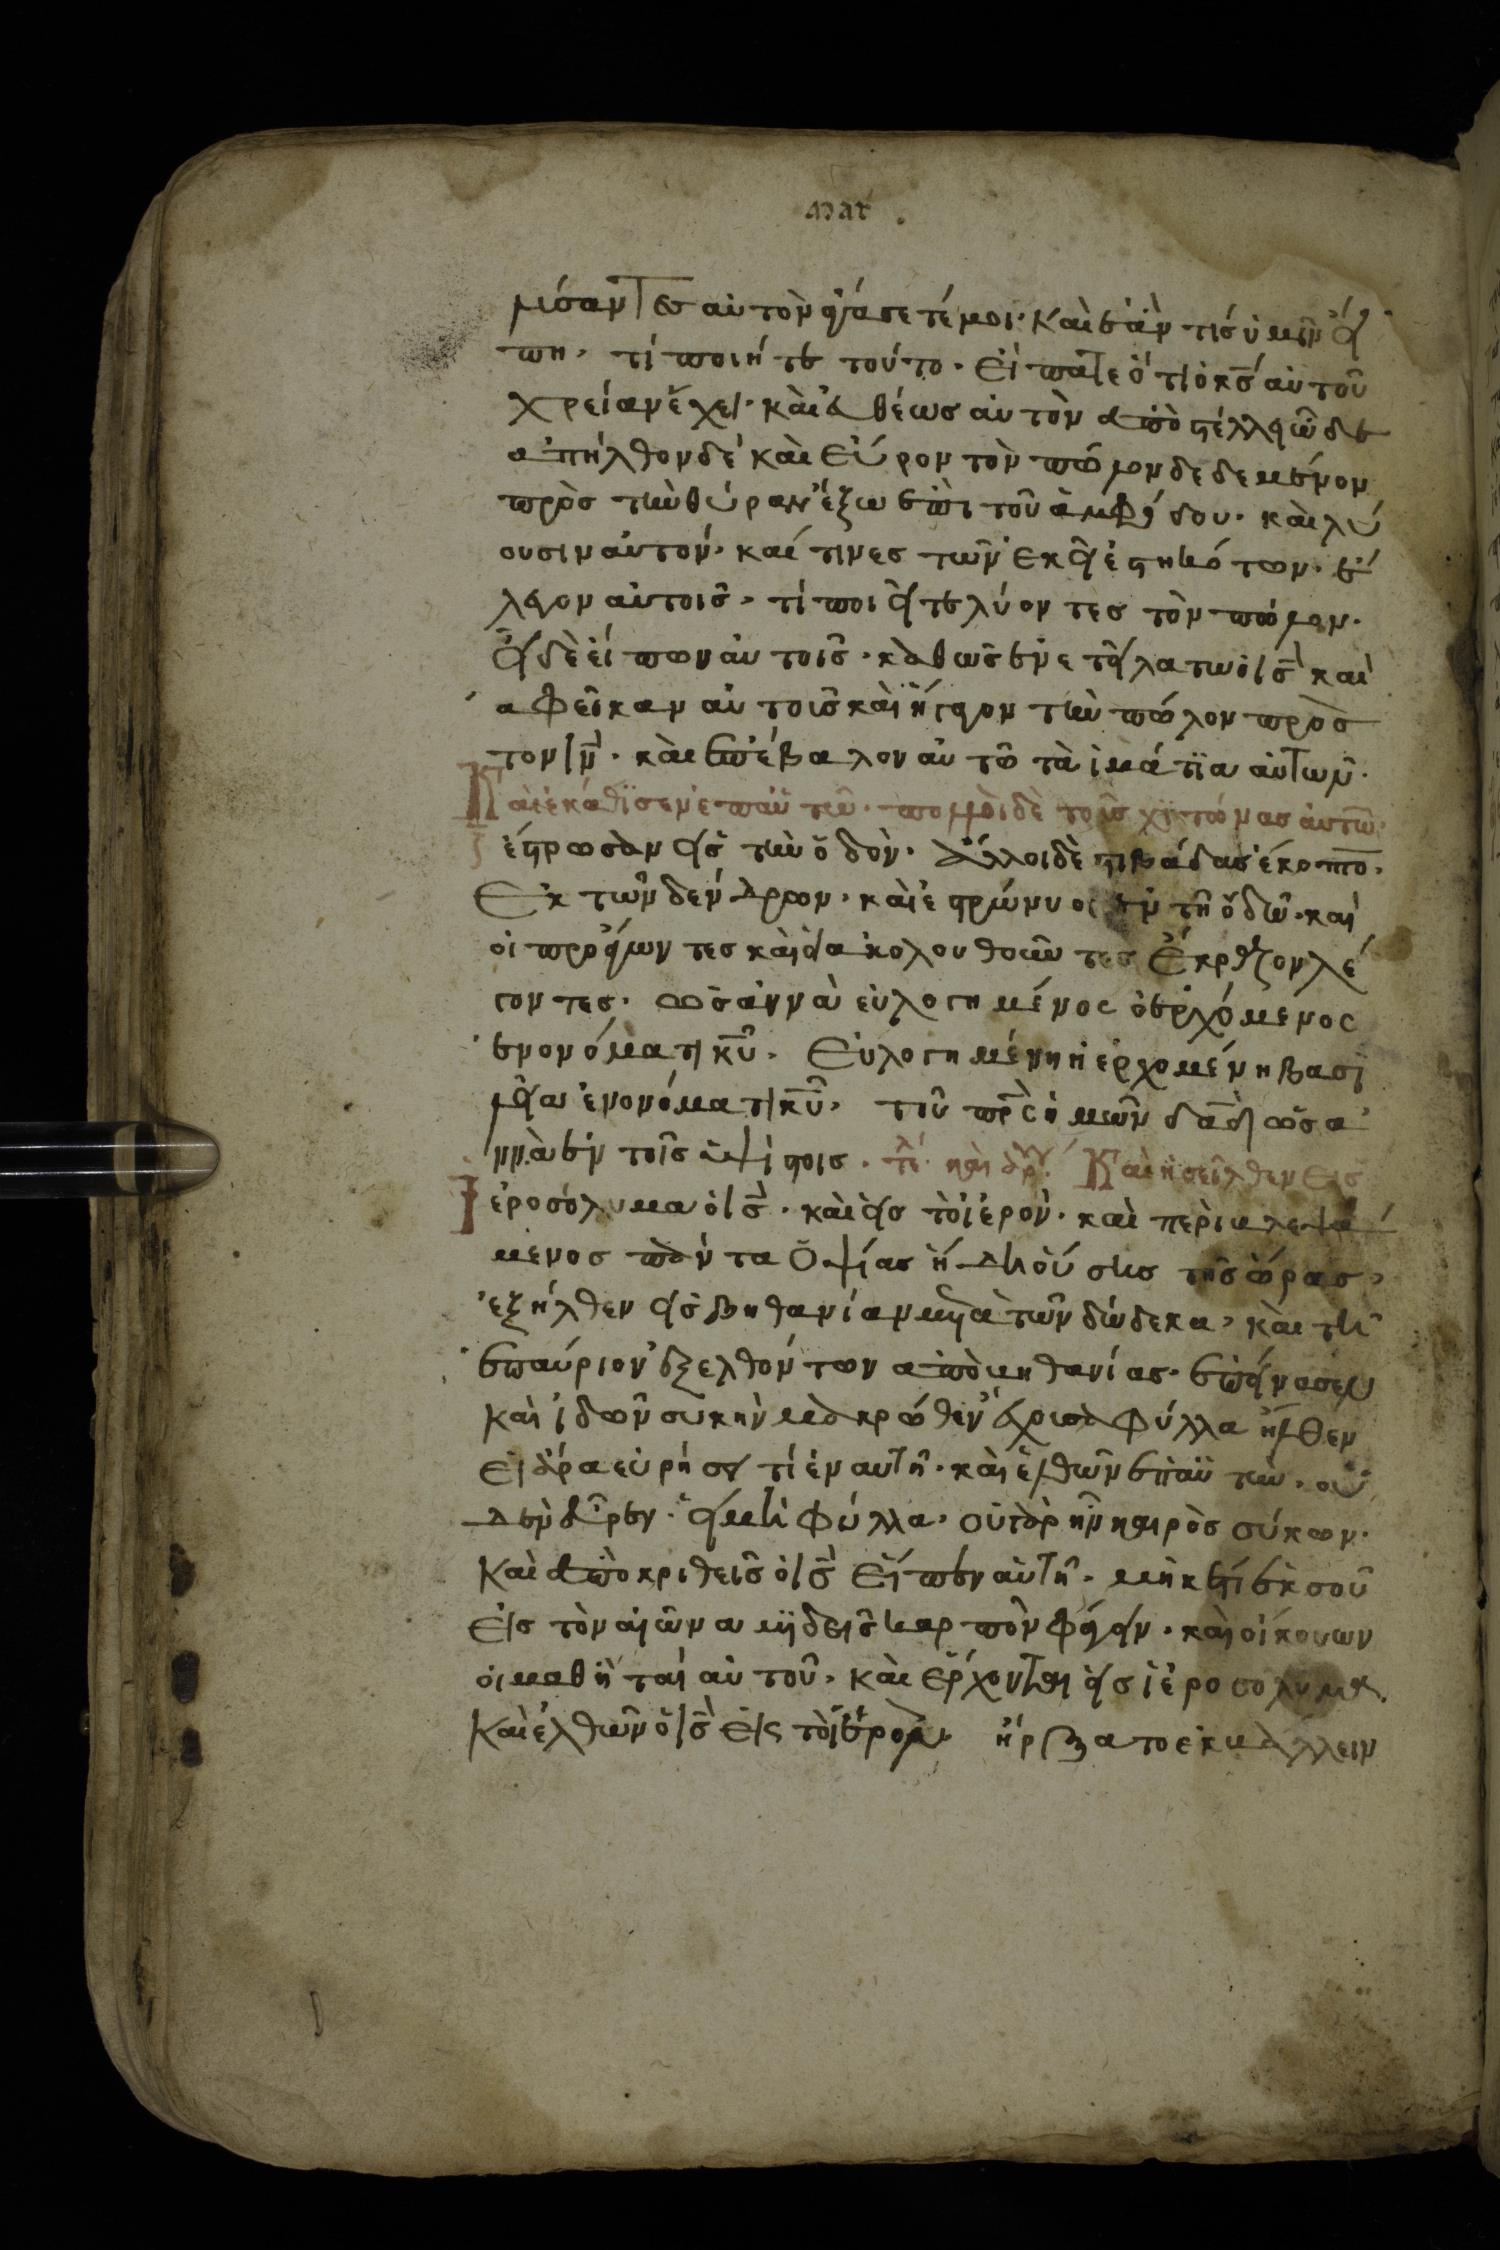 ματ .
μίσαντες αὐτὸν φέρετέ μοι· Καὶ ἐὰν τίς ὑμῖν εἴ
πη· τί ποιήτε τούτο· Εἴπατε ὅτι ὁ κς̄ αὐτοῦ
χρείαν ἔχει· καὶ εὐθέως αὐτὸν ἀποστέλλει ὧδε
απήλθον δέ καὶ Εὗρον τὸν πῶλον δεδεμένον
πρὸς τὴν θύραν ἔξω ἐπὶ τοῦ ἀμφόδου· καὶ λύ
ουσιν αὐτόν· καί τινες τῶν ἐκεῖ ἑστηκότων· ἔ
λεγον αὐτοις̃· τί ποιεῖτε λύοντες τὸν πώλον·
οἱ δὲ εἶπον αὐτοις̃· καθως̃ ἐνετείλατω ὁ ις̄ καὶ
αφεῖκαν αὐτοῖς καὶ ἤγαγον τὴν πώλον πρὸς
τον ιν̄· καὶ ἐπέβαλον αὐτῶ τὰ ἱμάτϊα αὐτῶν·
Καὶ ἐκάθϊσεν ἐπ αὐτῶ· πολλοὶ δὲ τοῖς χϊτώνας ἀυτῶ·
ἔστρωσαν εἰς τὴν ὅδὸν· ἄλλοι δὲ στιβάδας ἔκοπτο̄·
Εκ τῶν δένδρων· καὶ ἐστρώννυον ἐν τῆ ὅδῶ· καὶ
οἱ προάγωντες καὶ οἱ ακολουθοῦντες ἔκραζον λέ
γοντες· ωσαννὰ εὐλογημένος ὁ ἐρχόμενος
ἐν ονόματι κῡ· Εὐλογημένη ἡ ἐρχομένη βασι
λεία ἐν ονόματι κῡ· τοῦ πρ̄ς ἡμῶν δᾱδ ωσα
ννὰ ἐν τοῖς ὑψίστοις· Καὶ ἠσεῖλθεν Εἰς
ἱεροσόλυμα ὁ ις̄· καὶ εἰς τὸ ἱερὸν· καὶ περιβλεψά
μενος πάντα Ὀψίας ἤδη οὔσης τῆς ὥρας·
ἐξήλθεν εἰς βηθανίαν μετὰ τῶν δώδεκα· καὶ τῆ
ἐπαύριον ἐξελθόντων απὸ βηθανίας· ἐπείνασεν
Καὶ ἰδῶν συκὴν μακρώθεν ἔχουσα φύλλα ἦλθεν
Εἰ ἄρα εὑρήσει τί ἐν αυτῆ· καὶ ἐλθῶν ἐπ αὐτὴν· οὐ
δὲν εὗρεν· εἰ μὴ φύλλα· οὐ γὰρ ἦν καιρὸς σύκων·
Καὶ ἀποκριθεις̃ ὁ ις̄ Εἴπεν αὐτῆ· μὴκέτι ἐκ σοῦ
Εἰς τὸν αἰῶνα μηδεις̃ καρπὸν φάγειν· καὶ οἴκουων
οἱ μαθηταὶ αὐτοῦ· καὶ ἔρχονται εἰς ἱεροσόλυμα·
Καὶ ἐλθῶν ὁ ις̄ Εἰς τὸ ἱερον· ἤρξατο ἐκβάλλειν